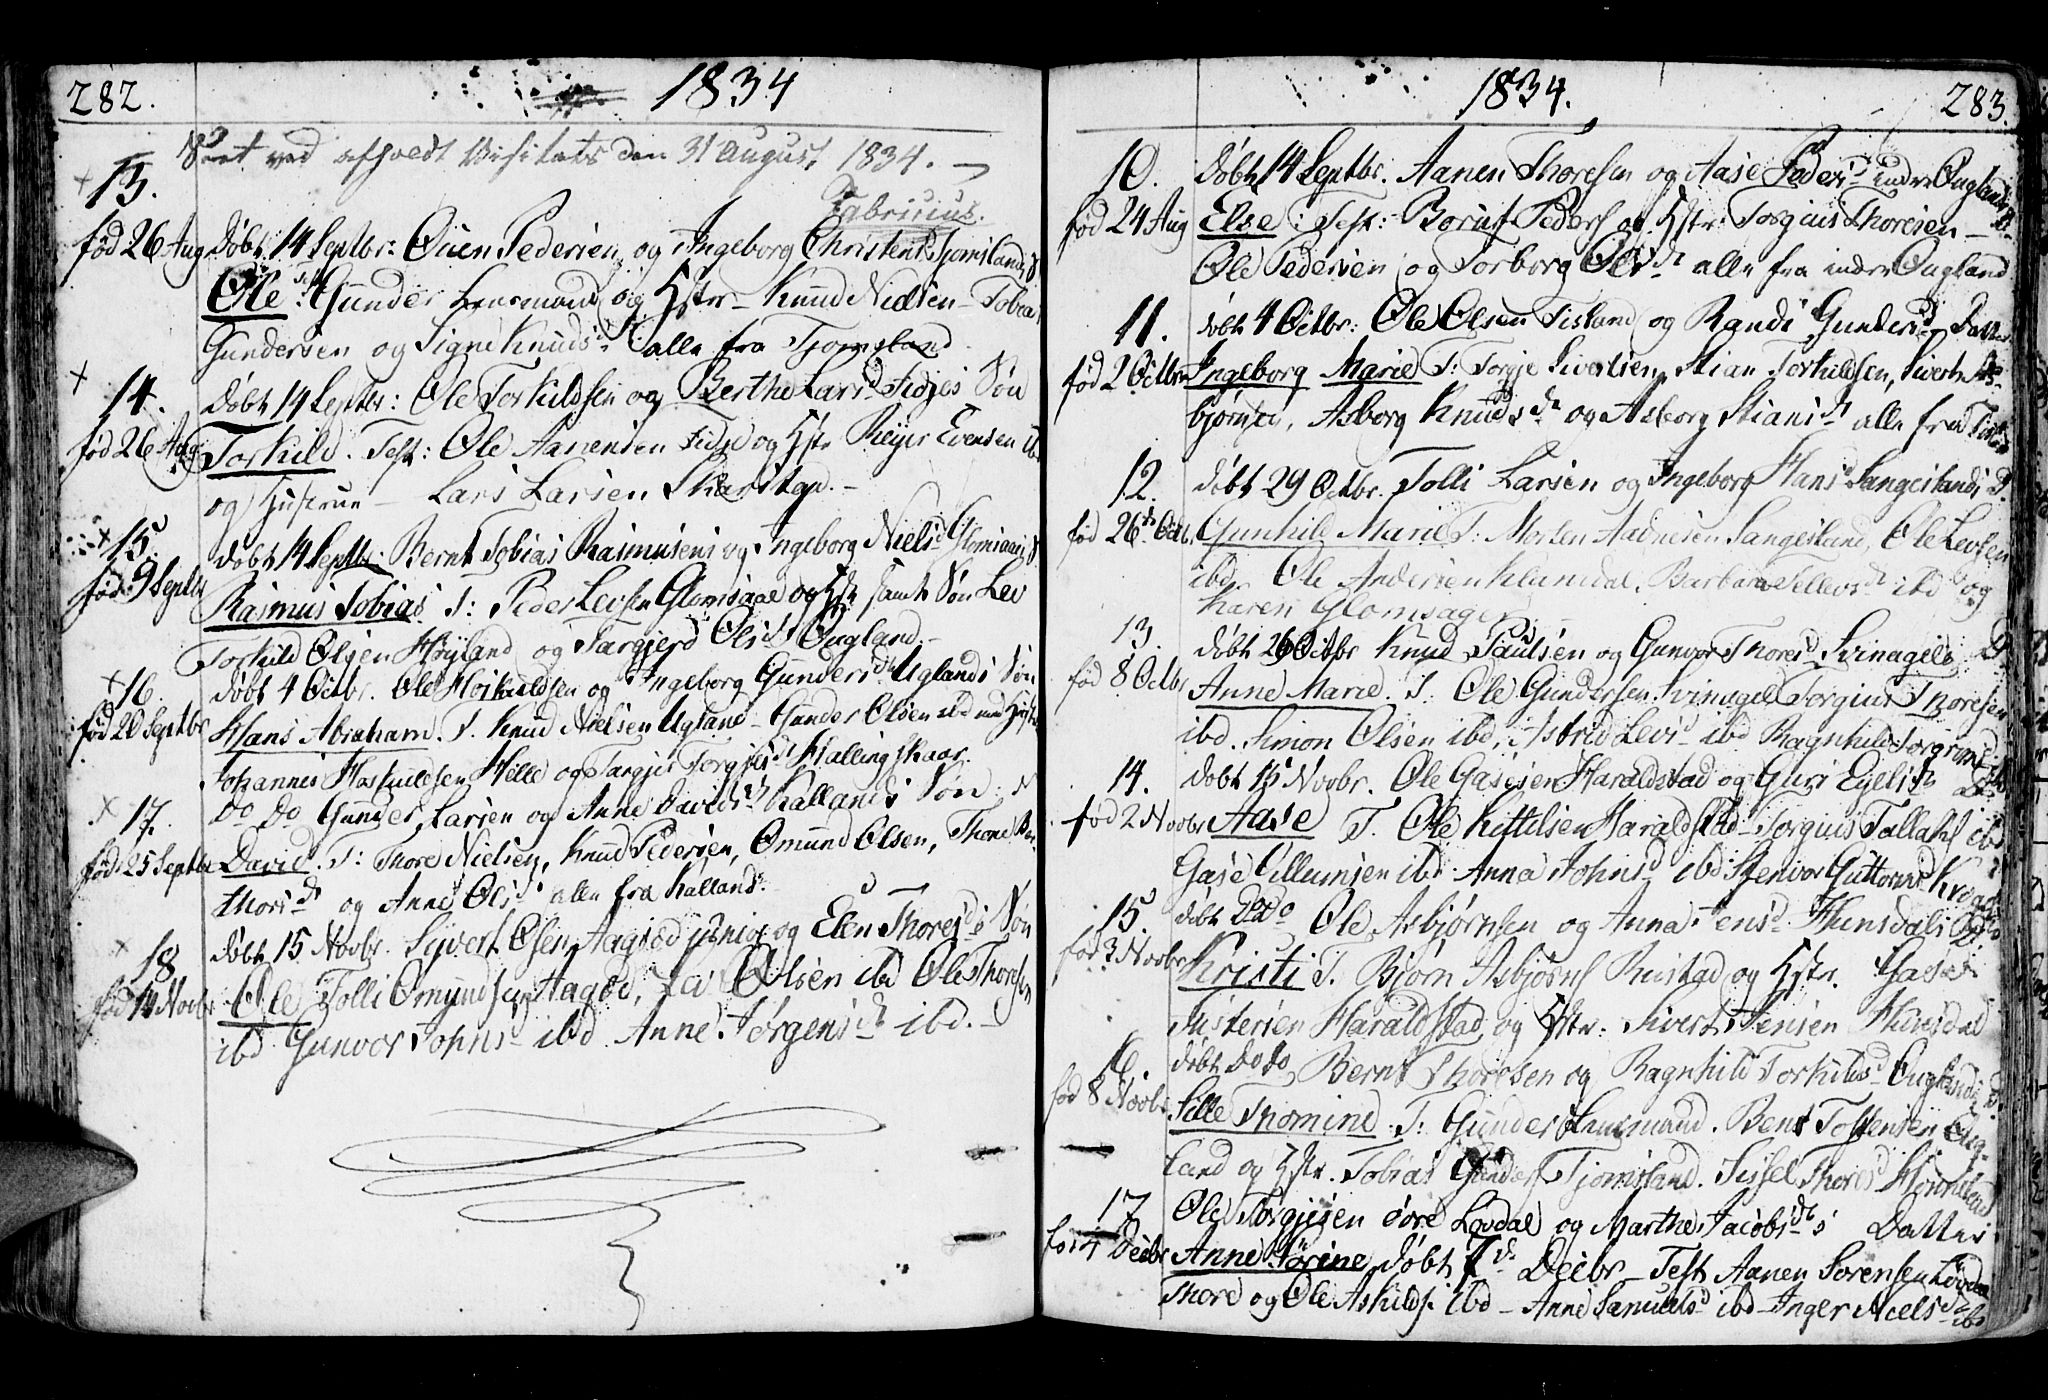 282.
1834
Seet ved afholdt Visitats den 31 August 1834. –
Fabricius.
13.
fød 26 Aug
Døbt 14 Septbr: Ouen Pedersen og Ingeborg Christensd Tjomslands S
Ole. Test: Gunder Lensmand og Hstr – Knud Nielsen – Tobias
Gundersen og Signe Knudsd alle fra Tjomsland
14.
fød 26 Aug
døbt 14 Septbr: Ole Torkildsen og Berthe Larsd Fidjes Søn
Torkild. Test: Ole Aanensen Fidje og Hstr Reijer Evensen ibd
og Hustrue – Lars Larsen Skarstap. –
15.
fød 9 Septbr
døbt 14 Septbr: Bernt Tobias Rasmusens og Ingeborg Nielsd Glomsaas S
Rasmus Tobias T: Peder Levsen Glomsaae og Hstr samt Søn Lev
Torkild Olsen Høyland og Targjerd Olsd Ougland. –
16.
fød 20 Septbr
døbt 4 Octbr. Ole Hoskuldsen og Ingeborg Gundersd Uglands Søn
Hans Abraham. T. Knud Nielsen Ugland – Gunder Olsen ibd med Hustr
Johannes Haskuldsen Helle og Targjer Torgjusd Hallingskaar.
17.
fød 25 Septbr
Do Do Gunder Larsen og Anne Davidsd Kallands Søn
David. T: Thore Nielsen, Knud Pedersen, Omund Olsen, Thone
thorsd og Anne Olsd alle fra Kalland.
18
fød 14 Novbr
døbt 15 Novbr. Syvert Olsen Aagsod junior og Elen Thoresd s Søn
Ole Tolli Omundsen Hagod, Olsen ibd Ole Thoresen
ibd Gunvor Johnsd ibd Anne Jørgensdt ibd. –
1834.
283.
10.
fød 24 Aug
døbt 14 Septbr. Aanen Thoresen og Aase Pedersd indre Ouglands
Else: Test: Bornt Peders og Hstr: Torgius Thoresen –
Ole Pedersen og Torborg Olsdt alle fra indre Ougland
11.
fød 2 Octbr
døbt 4 Octbr: Ole Olsen Fisland og Randi Gundersd Datter
Ingeborg Marie T: Torgje Sivertsen, Stian Torkildsen, Sivert As-
bjørnsen, Asborg Knudsdt og Asborg Stiansdt alle fra Fisland
12.
fød 26 Octb.
døbt 29 Octbr. Tolli Larsen og Ingeborg Hansd Sangeslands D.
Gunhild Marie T: Morten Aadnesen Sangesland, Ole Levsen
ibd, Ole Andersen Klunsdal, Barbara Tellevsdt ibd og
Karen Glomsager –
13.
fød 8 Octbr
døbt 26 Octbr Knud Paulsen og Gunvor Thoresd Svinagels D
Anne Marie. T. Ole Gundersen Svinagel Torgius Thoresen
ibd. Simon Olsen ibd, Astrid Levsd ibd Ragnhild Torgrimsd
14.
fød 2 Novbr
døbt 15 Novbr. Ole Gasesen Haraldstad og Guri Egelisdt
Aase T. Ole Kittilsen Haraldstad – Torgius Tallaks ibd
Gase Villumsen ibd Anna Johnsd ibd Gjenvor Guttormsd
15.
fød 3 Novbr
døbt Dodo Ole Asbjørnsen og Anna Jensd Hunsdals D.
Kristi T. Bjørn Asbjørns Rustad og Hstr. Gase
Justersen Haraldstad og Hstr: Sivert Jensen Hunsdal
16.
fød 8 Novbr
døbt Dodo Bernt Thoresen og Ragnhild Torkildsd Ouglands D.
Sille Thomine. T: Gunder Lensmand. Bent Tostensen Oug-
land og Hstr. Tobias Gunders Tjomsland. Sissel Thoresd
17
fød 4 Decbr
Ole Torgjesen øvre Lovdal og Marthe Jacobsdt s Datter
Anne Tørine, døbt 7de Decbr – Test Aanen Sørensen Lovdal
Thore og Ole Askilds. ibd – Anne Samuelsd ibd – Inger Nielsdt ibd